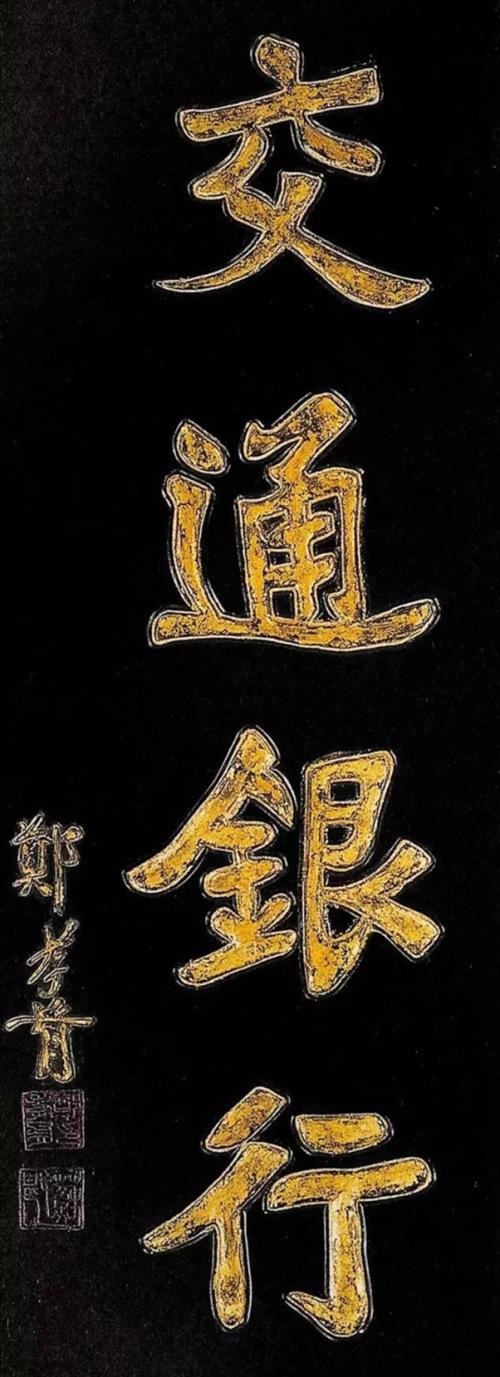 交通銀行
鄭孝胥